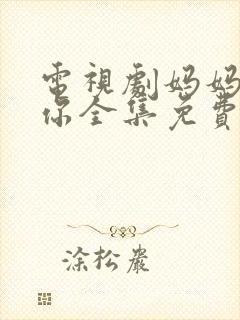 電視劇妈妈
你全集免費
涂松巖